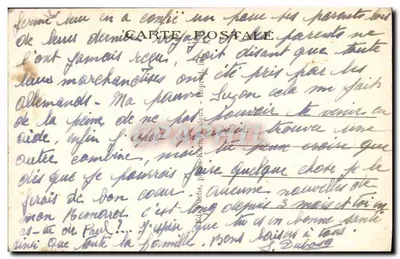 fermé leur en a confié un pour tes parents lors
de leurs derniers voyage tes parents ne
CARTE POSTALE
l'ont jamais reçu, soit disant que toute
leurs marchandises ont été pris par les
allemands - Ma pauvre Suzon cela me fait
de la peine de ne pas pouvoir te venir en
aide, enfin si trouver une
autre combine, mais tu peux croire que
dès que je pourrais faire quelque chose je le
ferais de bon cœur. aucune nouvelles de
mon Bernard c'est long depuis 3 mois et toi en
as-tu de Paul?... J'espère que tu es en bonne santé
ainsi que toute ta famille. Bons baisers à tous.
S. Dubosq